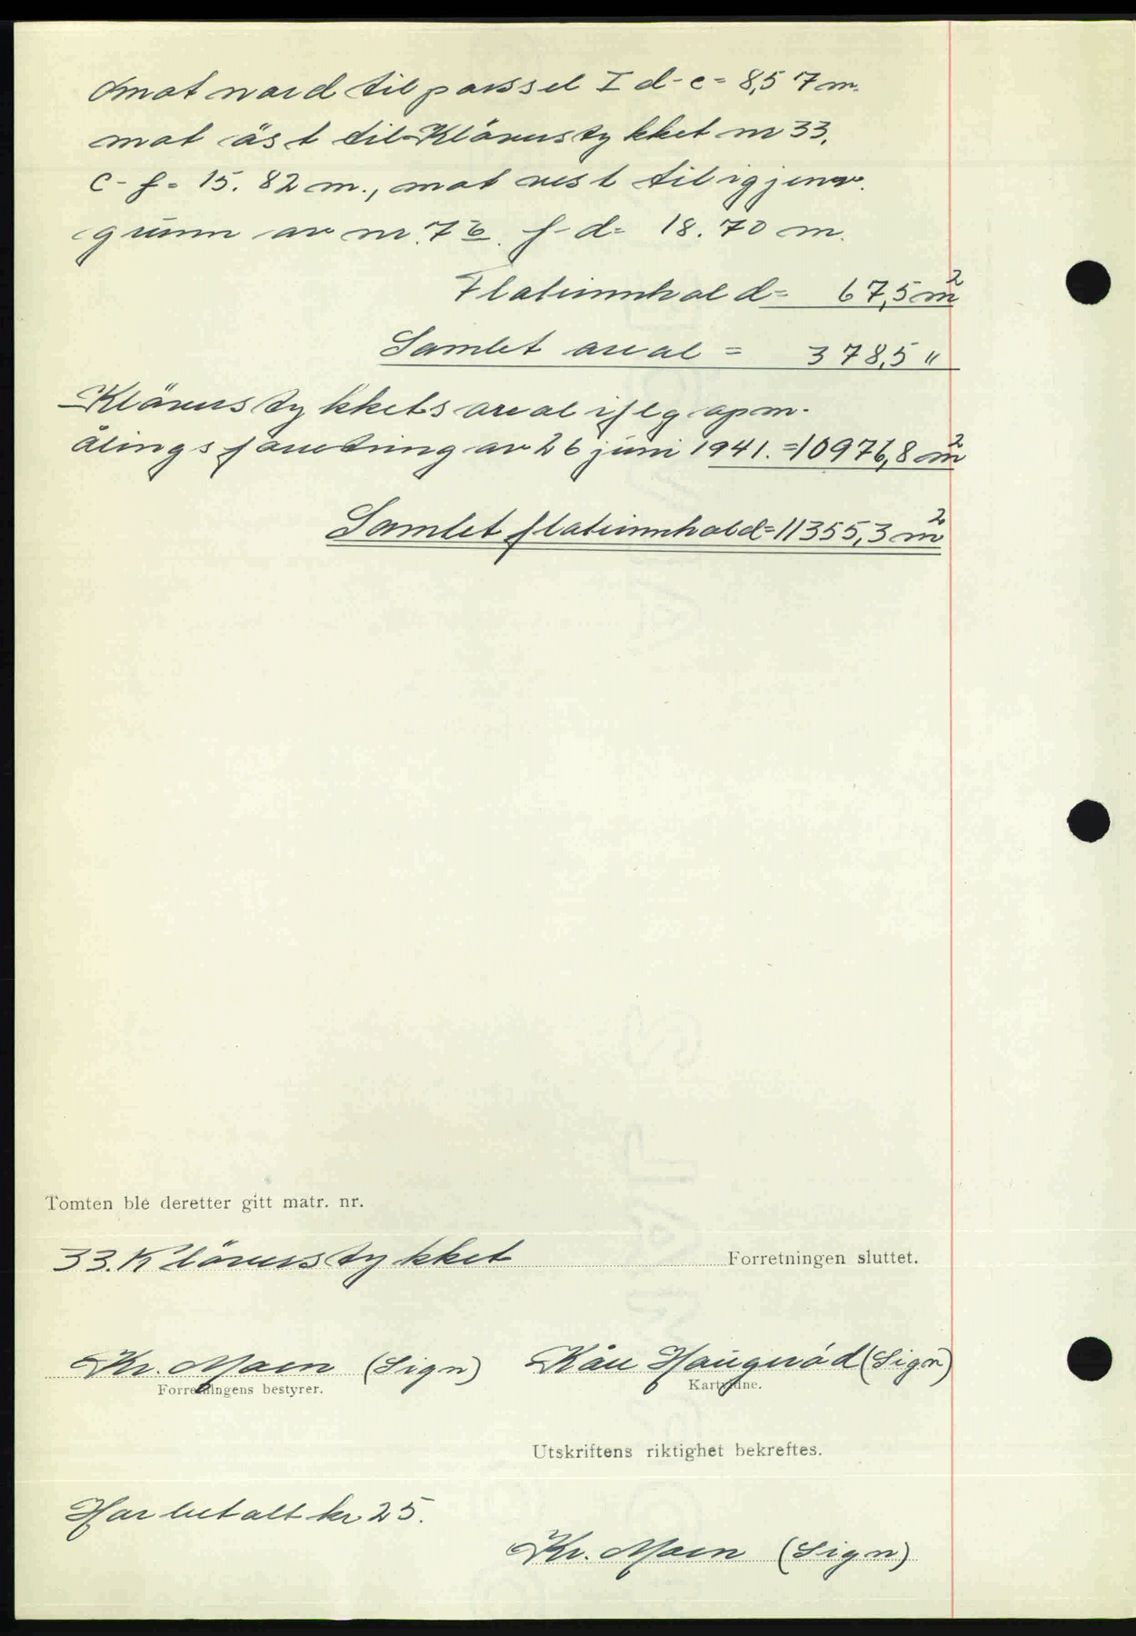 mot nord til parssel I d-c = 8,57 m.
mot øst til Klørustykket nr 33,
c-f = 15.82 m., mot vest til igjenv.
grunn av nr. 7b. f-d = 18.70 m.
Flateinnhold = 67,5 m²
Samlet areal = 378,5 "
Klørustykkets areal iflg opm-
ålingsforretning av 26 juni 1941. = 10976,8 m²
Samlet flateinnhold = 11355,3 m²
Tomten ble deretter gitt matr. nr.
33. Klørustykket Forretningen sluttet.
Kr. Moen (Sign) Kåre Haugerød (Sign)
Forretningens bestyrer. Kartvidne.
Utskriftens riktighet bekreftes.
Har betalt kr 25.
Kr. Moen (Sign)